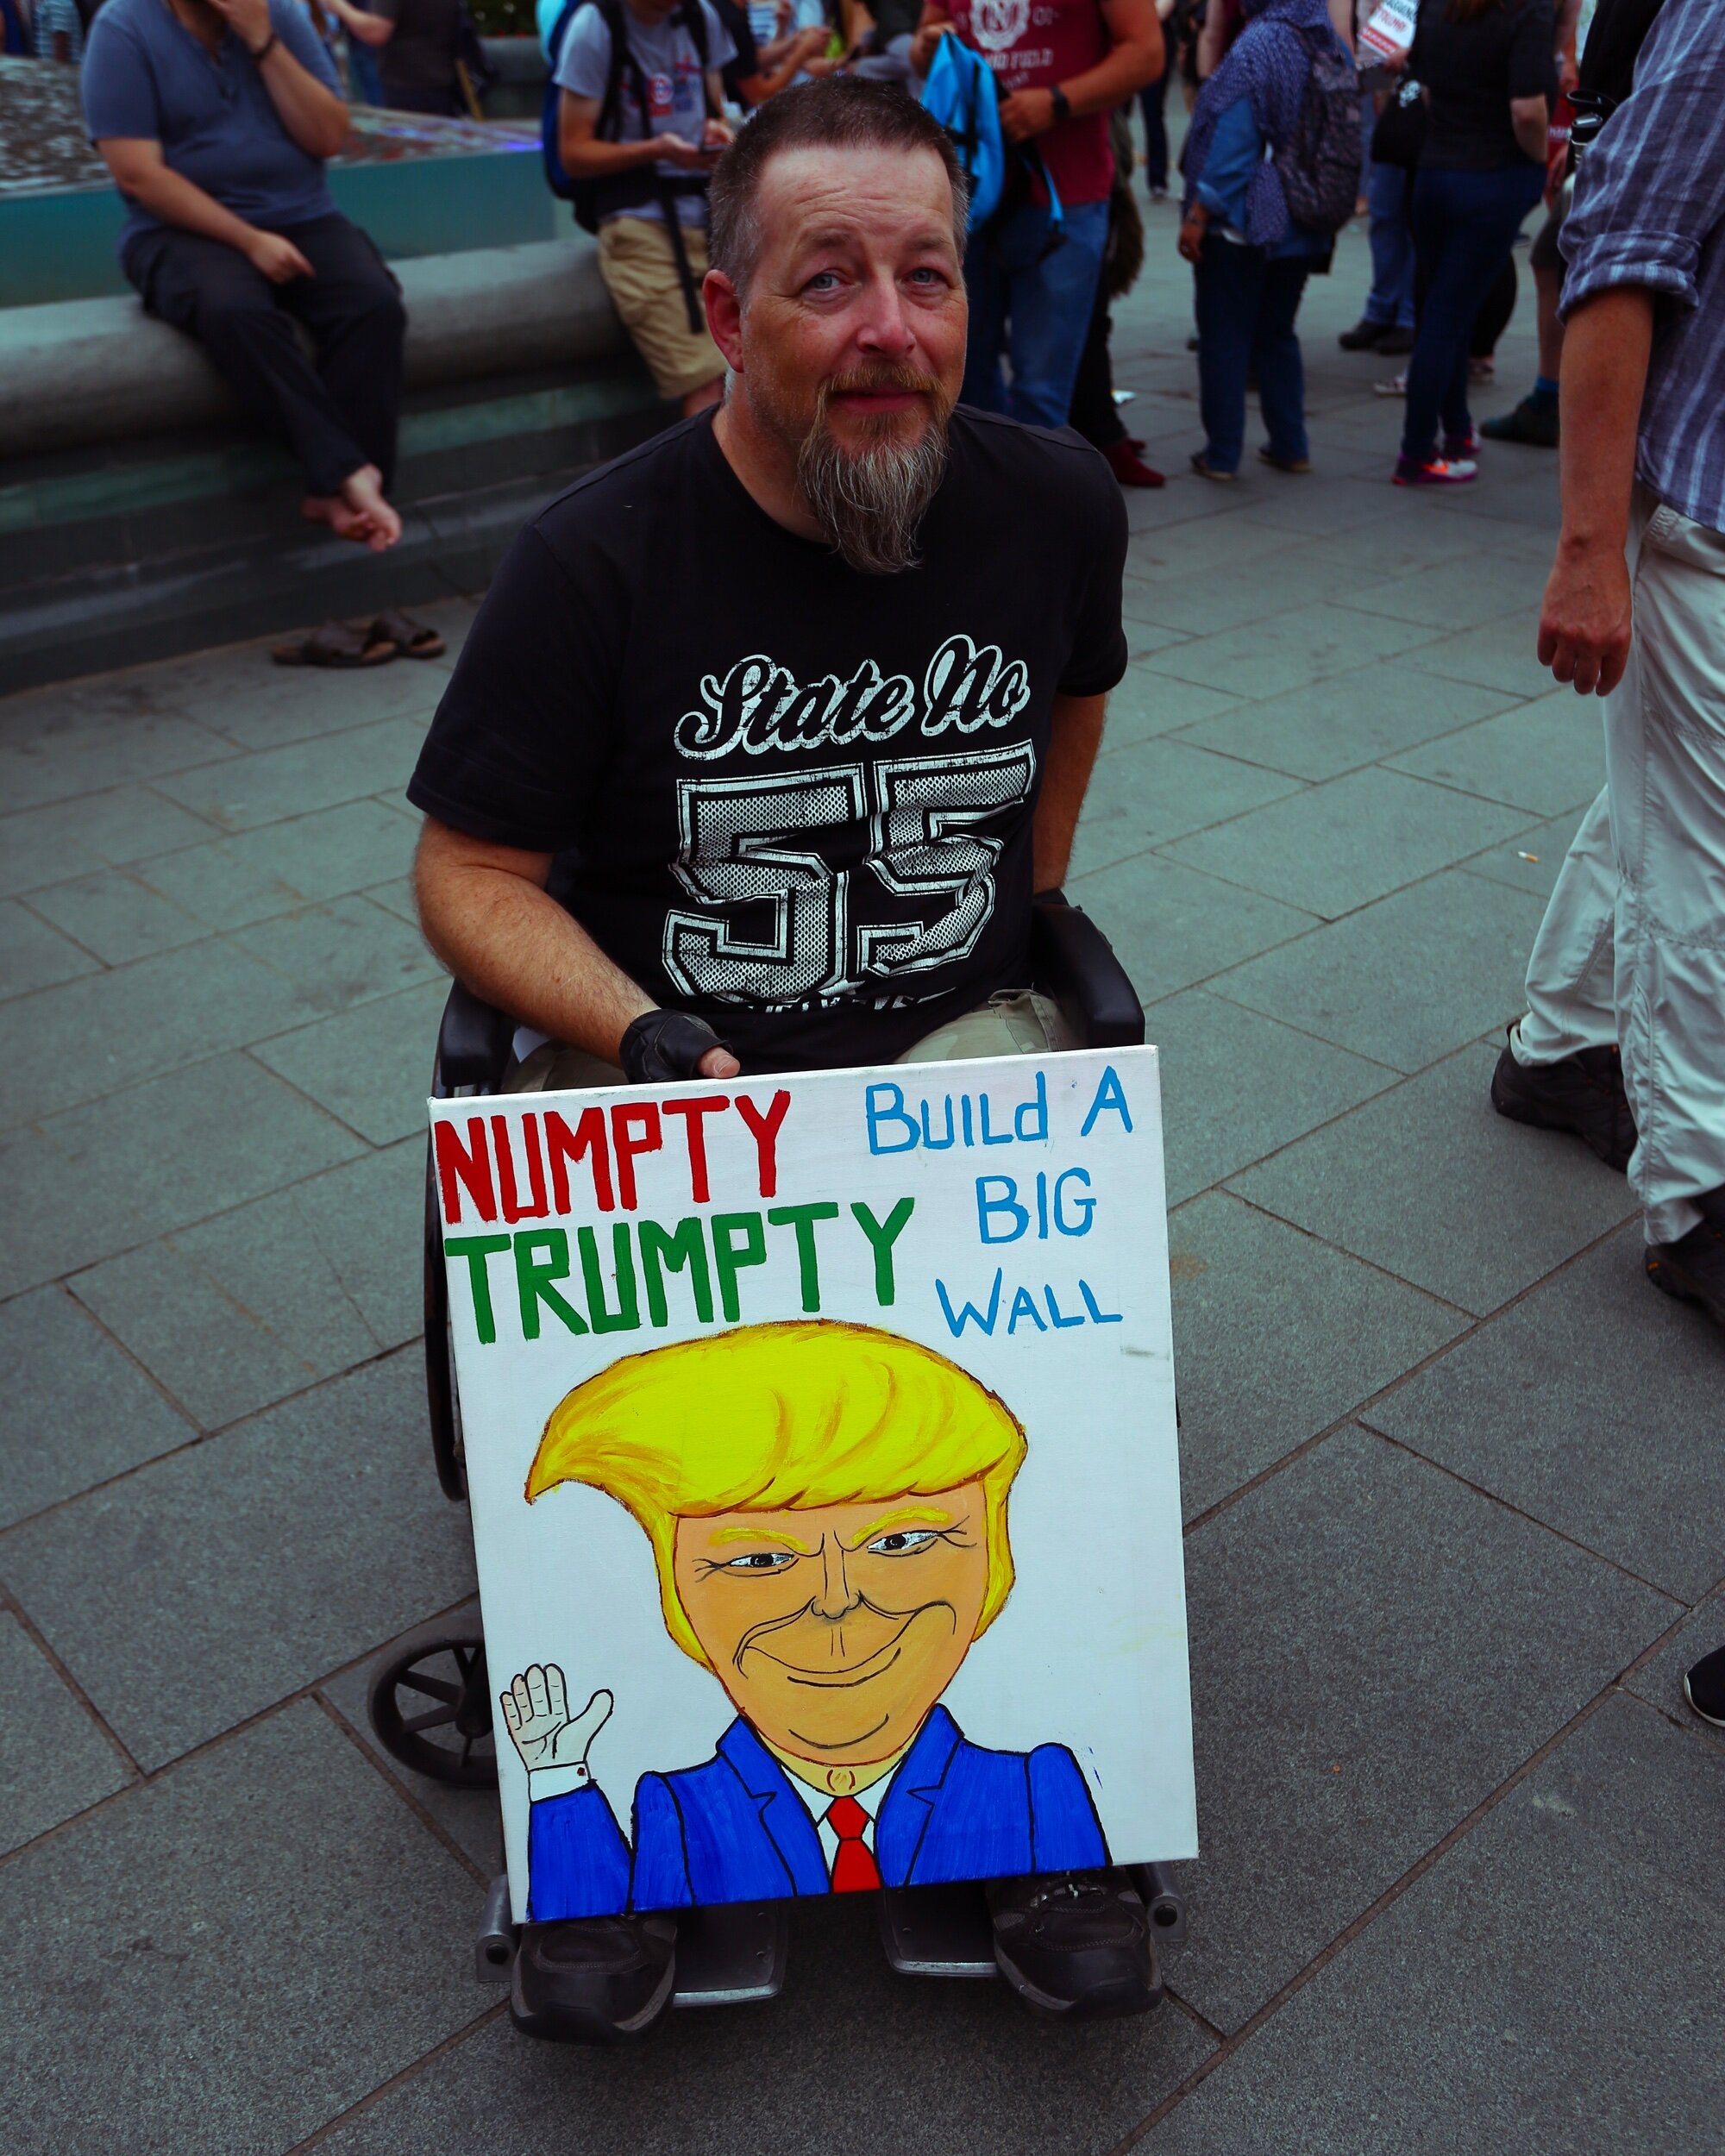 State No
55
NUMPTY
TRUMPTY
BUILd A
BIG
WALL